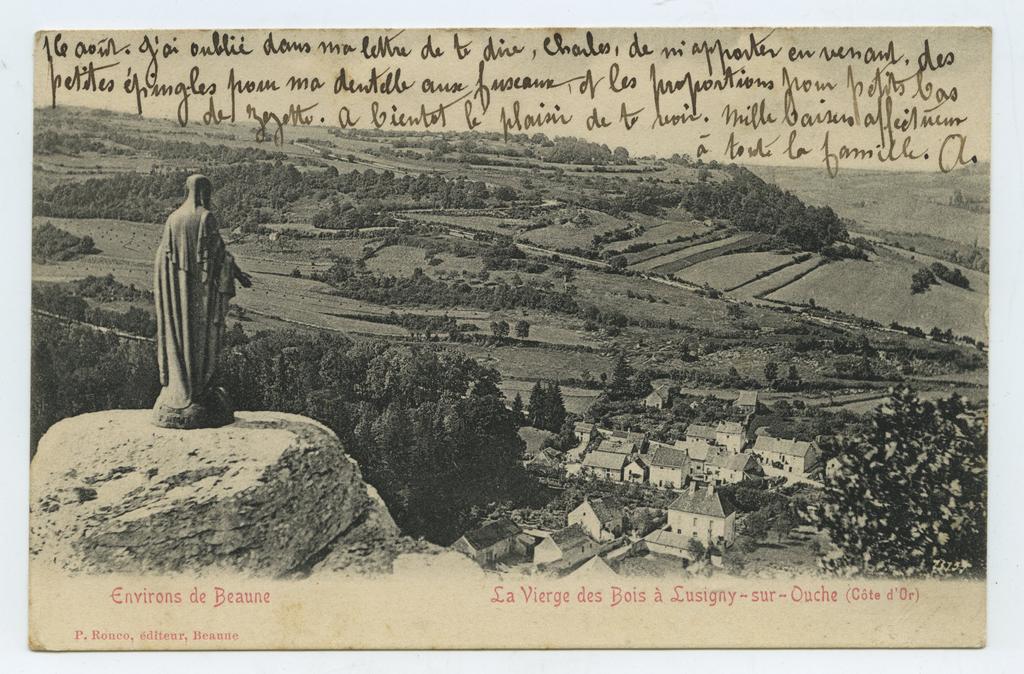 16 août. J'ai oublié dans ma lettre de te dire, Charles, de m'apporter en venant, des
petites épingles pour ma dentelle aux fuseaux, et les proportions pour petits bas
de Zézette. A bientôt le plaisir de te voir. Mille baisers affectueux
à toute la famille. A.
Environs de Beaune
La Vierge des Bois à Lusigny-sur-Ouche (Côte d'Or)
P. Ronco, éditeur, Beaune